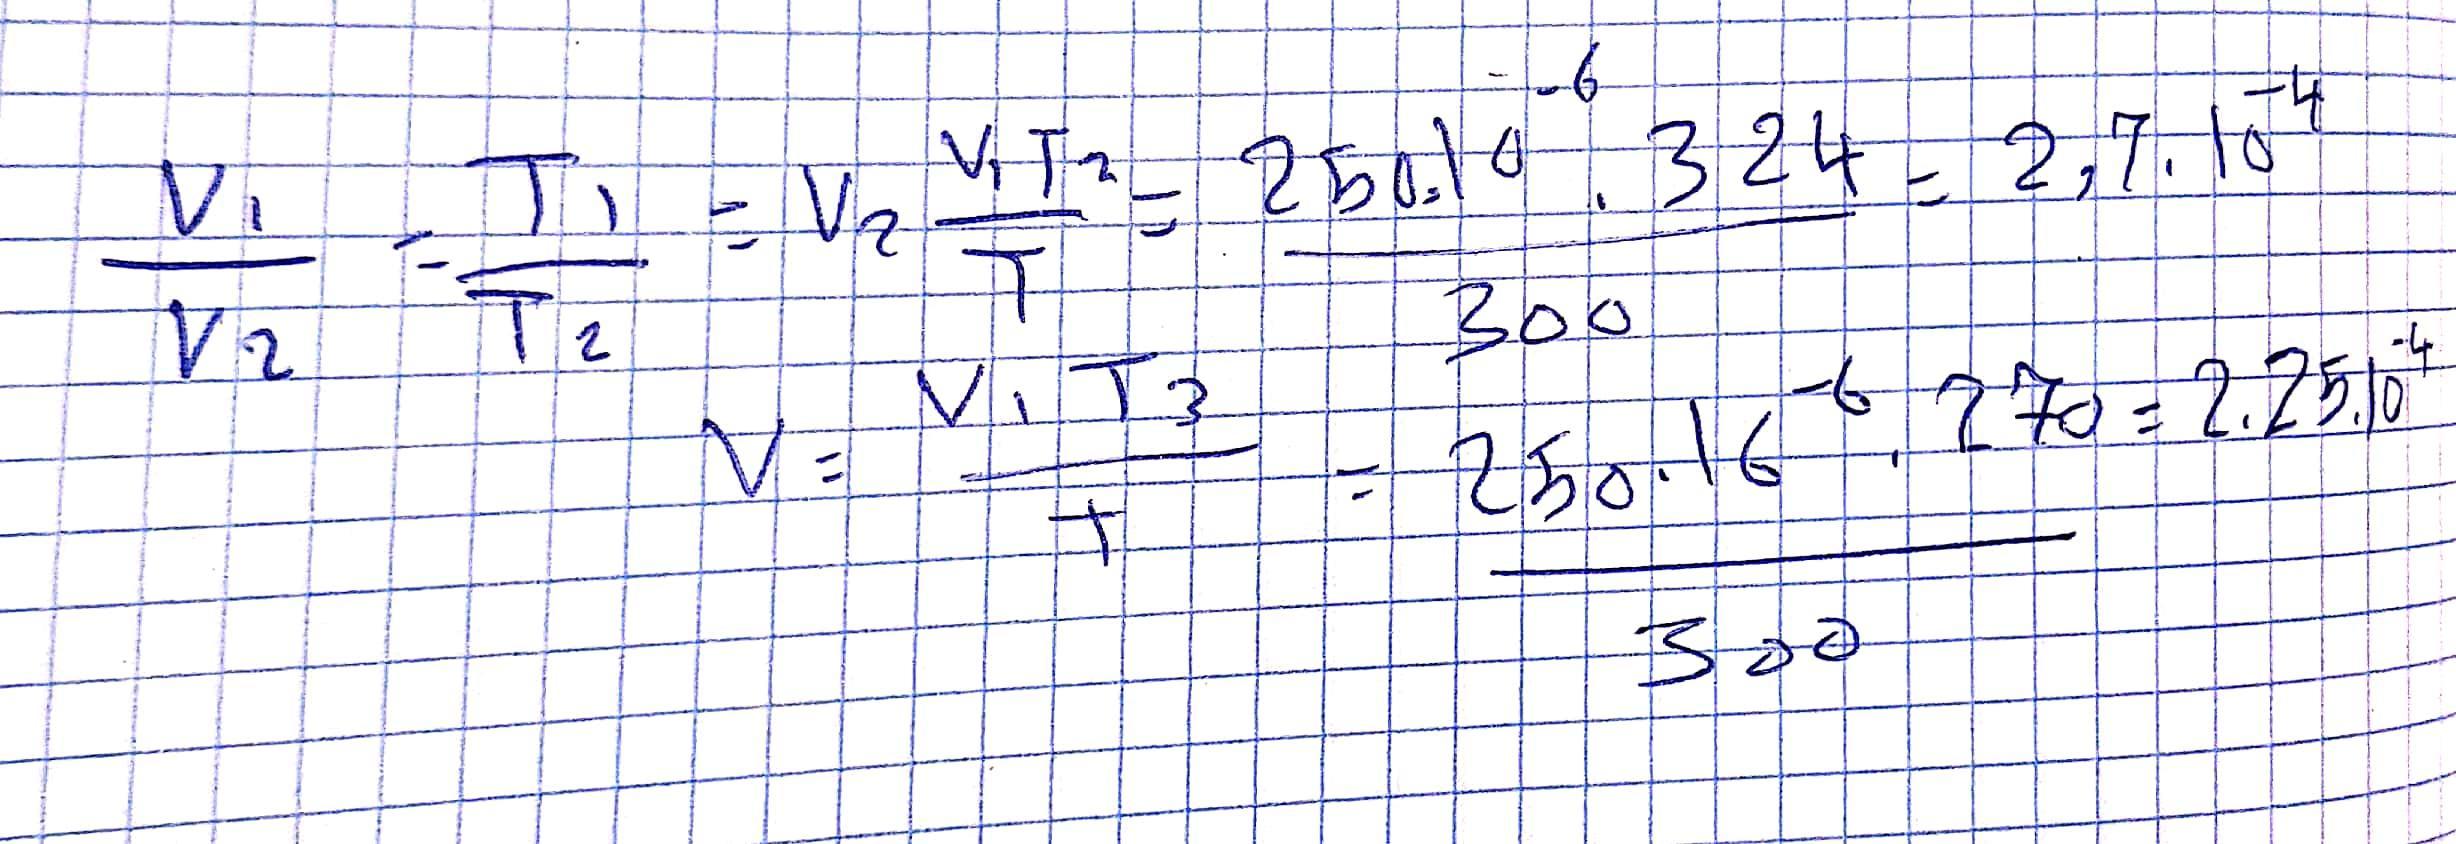 V1/V2 = T1/T2 = V2 V1T2/T = 250.10^-6 . 324/300 = 2,7.10^-4
V = V1T3/T = 250.16^-6 . 270/300 = 2.25.10^-4